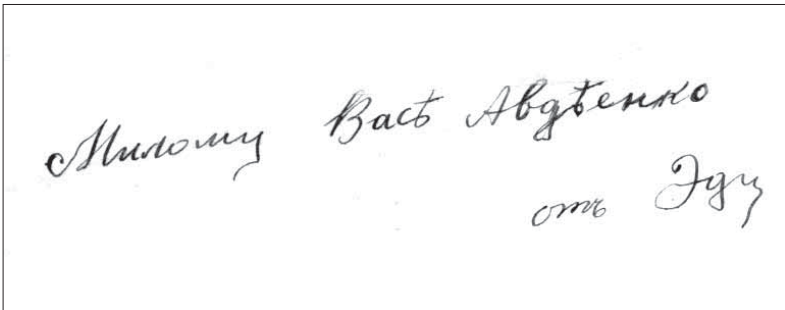 Милому Васѣ Авдѣенко
отъ Эду